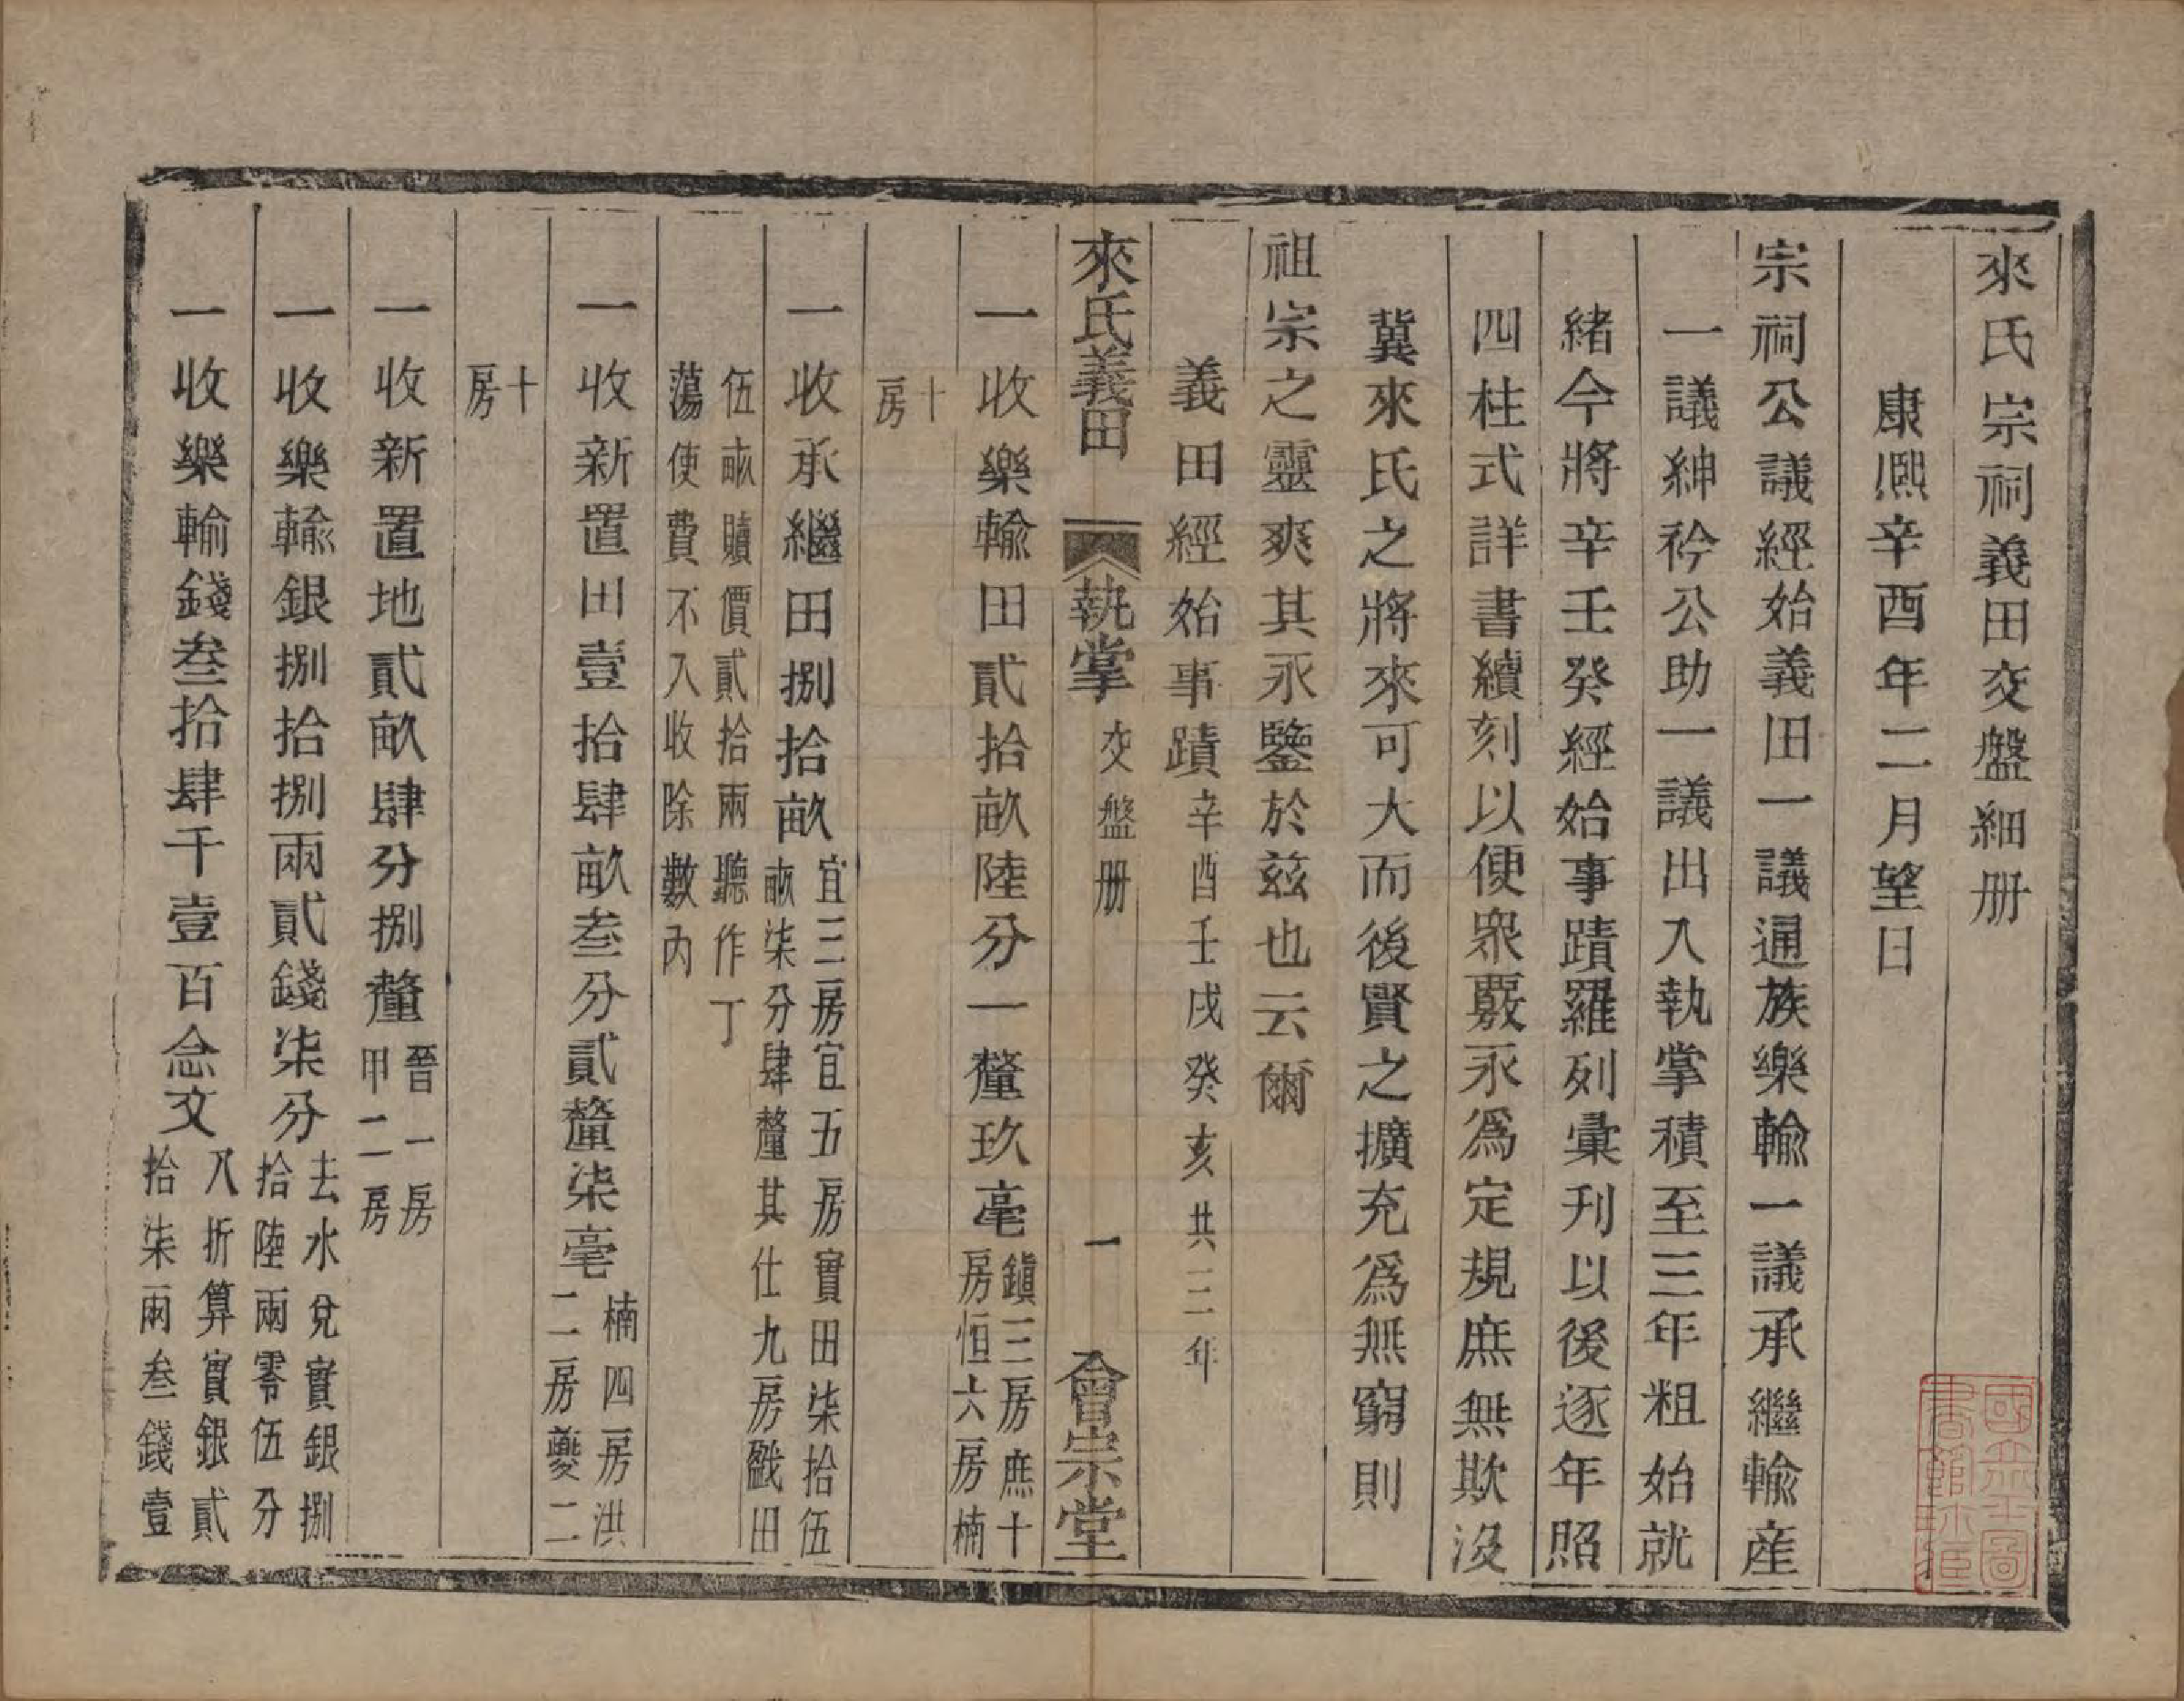 來氏宗祠義田交盤細册
康熙辛酉年二月望日
宗祠公議經始義田一議通族樂輸一議承繼輸産
一議紳衿公助一議出入執掌積至三年粗始就
緒今將辛壬癸經始事蹟羅列彙刊以後逐年照
四柱式詳書續刻以便衆覈永爲定規庶無欺沒
冀來氏之將來可大而後賢之擴充爲無窮則
祖宗之靈爽其永鑒於兹也云爾
義田經始事蹟辛酉壬戌癸亥共三年
來氏義田 執掌 交盤册 一 會宗堂
一收樂輸田貳拾畝陸分一釐玖毫鎮三房庶十
房恒六房楠
十
房
一收承繼田捌拾畝宜三房宜五房實田柒拾伍
畝柒分肆釐其仕九房戤田
伍畝贖價貳拾兩聽作丁
蕩使費不入收除數內
一收新置田壹拾肆畝叁分貳釐柒毫楠四房洪
二二房夔二
十
房
一收新置地貳畝肆分捌釐晉一房
甲二房
一收樂輸銀捌拾捌兩貳錢柒分去水兌實銀捌
拾陸兩零伍分
一收樂輸錢叁拾肆千壹百念文八折算實銀貳
拾柒兩叁錢壹
國立北平圖
書館珍藏